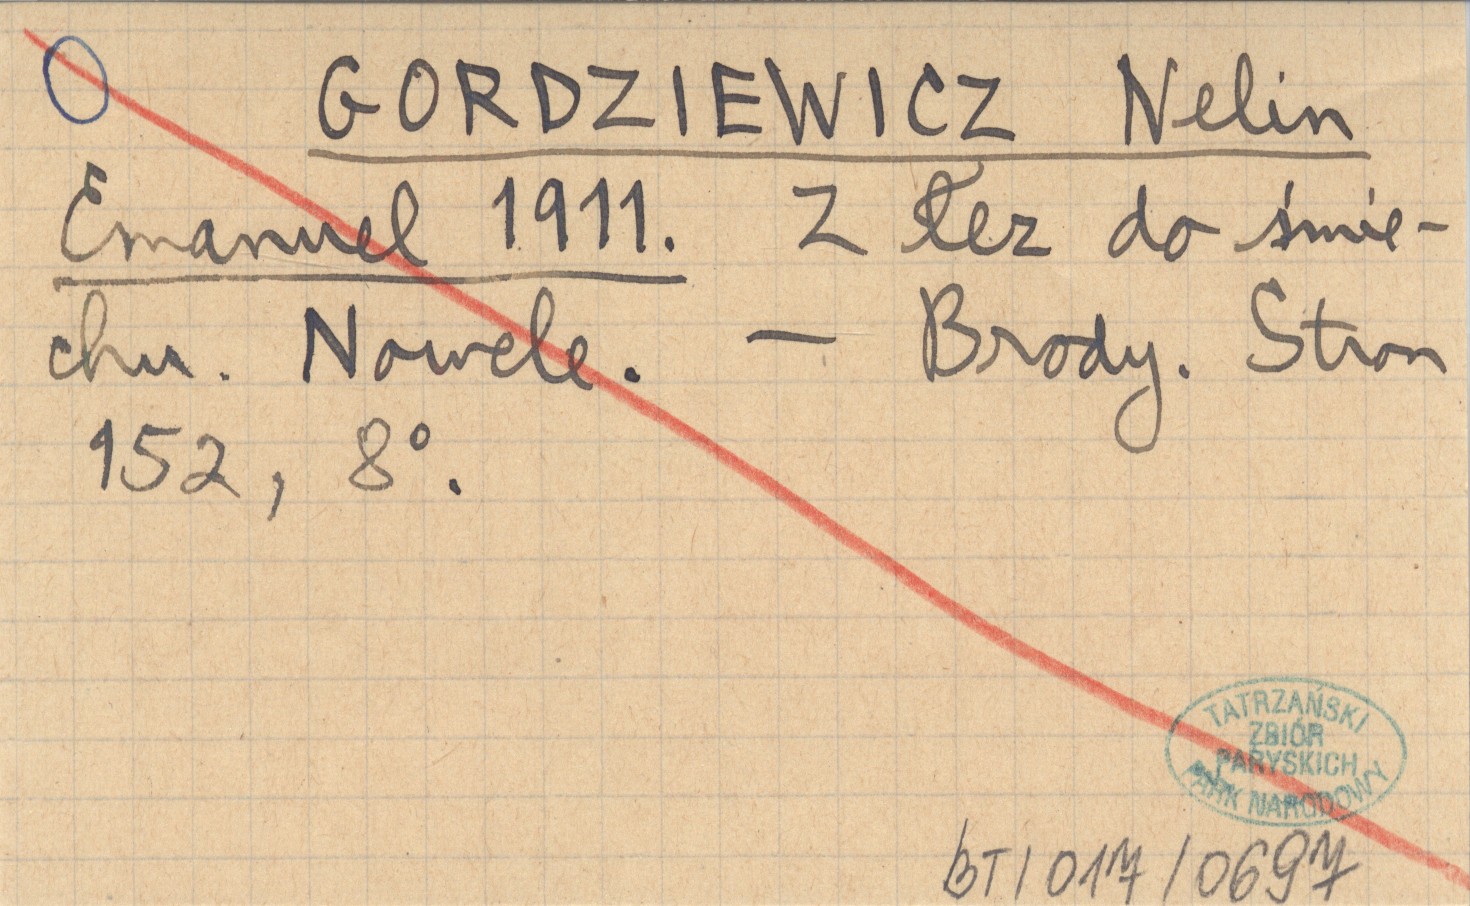 GORDZIEWICZ Nelin
Emanuel 1911. Z łez do śmie-
chu. Nowele. — Brody. Stron
152, 8°.
TATRZAŃSKI
ZBIÓR
PARYSKICH
PARK NARODOWY
BT/017/0697